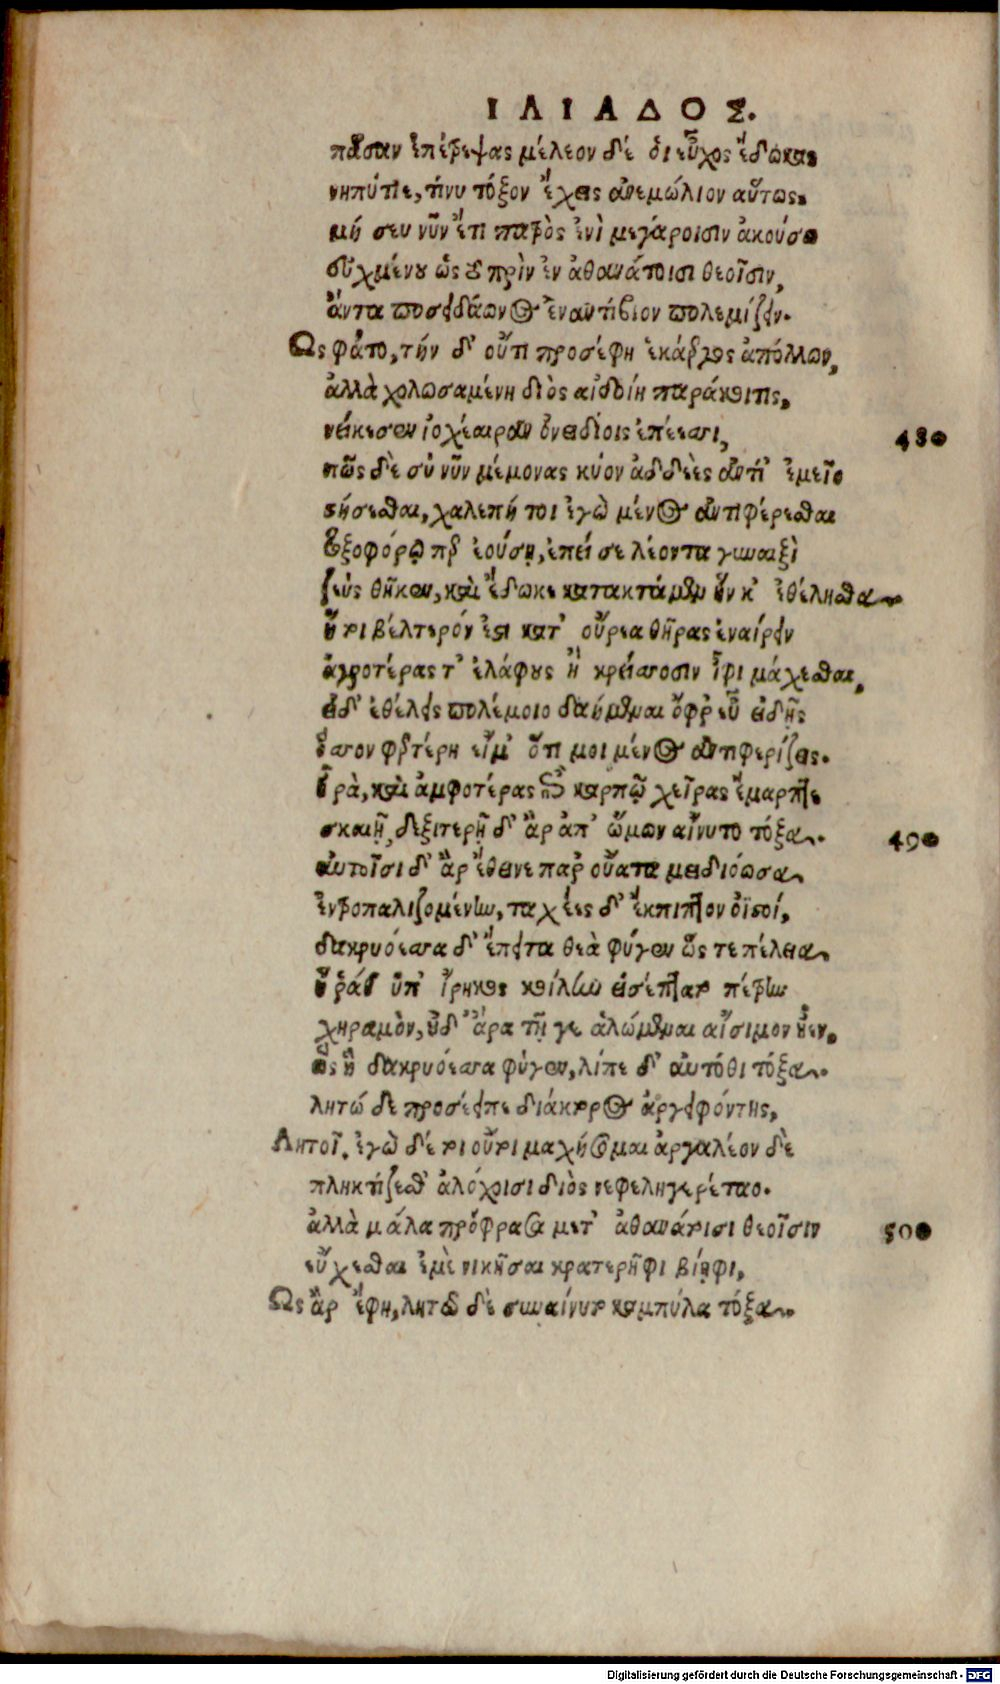 ΙΛΙΑΔΟΣ.
πᾶσαν ἐπέτρεψας μέλεον δέ οἱ εὖχος ἔδωκας
νηπύτιε, τί νυ τόξον ἔχεις ἀνεμώλιον αὔτως.
μή σευ νῦν ἔτι πατρὸς ἐνὶ μεγάροισιν ἀκούσω
εὐχομένου ὡς τὸ πρὶν ἐν ἀθανάτοισι θεοῖσιν,
ἄντα ποσειδάωνος ἐναντίβιον πολεμίζειν.
Ως φάτο, τήν δ' οὔτι προσέφη ἑκάεργος ἀπόλλων,
ἀλλὰ χολωσαμένη διὸς αἰδοίη παράκοιτις,
νείκεσεν ἰοχέαιραν ὀνειδίοις ἐπέεσσι, 480
πῶς δὲ σὺ νῦν μέμονας κύον ἀδδεὲς ἀντί' ἐμεῖο
στήσεσθαι, χαλεπή τοι ἐγὼ μένος ἀντιφέρεσθαι
τοξοφόρῳ περ ἐούσῃ, ἐπεί σε λέοντα γυναιξὶ
ζεὺς θῆκεν, καὶ ἔδωκε κατακτάμεν ἥν κ' ἐθέλησθα
ἤτοι βέλτερόν ἐστι κατ' οὔρεα θῆρας ἐναίρειν
ἀγροτέρας τ' ἐλάφους ἢ κρείσσοσιν ἶφι μάχεσθαι,
εἰ δ' ἐθέλεις πολέμοιο δαήμεναι ὄφρ' εὖ εἰδῇς
ὅσσον φερτέρη εἴμ' ὅτι μοι μένος ἀντιφερίζεις.
Ἦ ρὰ, καὶ ἀμφοτέρας ἐπὶ καρπῷ χεῖρας ἔμαρπτε
σκαιῇ, δεξιτερῇ δ' ἂρ ἀπ' ὤμων αἴνυτο τόξα. 490
αὐτοῖσι δ' ἂρ ἔθεινε παρ' οὔατα μειδιόωσα
ἐντροπαλιζομένην, ταχέες δ' ἔκπιπτον ὀϊστοί,
δακρυόεσσα δ' ἔπειτα θεὰ φύγεν ὥς τε πέλεια
ἥ ῥά θ' ὑπ' ἴρηκος κοίλην εἰσέπτατο πέτρην
χηραμὸν, οὐδ' ἄρα τῇ γε ἁλώμεναι αἴσιμον ἦεν,
ὣς ἣ δακρυόεσσα φύγεν, λίπε δ' αὐτόθι τόξα.
λητώ δὲ προσέειπε διάκτορος ἀργειφόντης,
Λητοῖ, ἐγὼ δέ τοι οὔτι μαχήσομαι ἀργαλέον δὲ
πληκτίζεσθ' ἀλόχοισι διὸς νεφεληγερέταο.
ἀλλὰ μάλα πρόφρασσα μετ' ἀθανάτοισι θεοῖσιν 500
εὔχεσθαι ἐμὲ νικῆσαι κρατερῆφι βίηφι,
Ως ἂρ ἔφη, λητὼ δὲ συναίνυτο καμπύλα τόξα
Digitalisierung gefördert durch die Deutsche Forschungsgemeinschaft - DFG